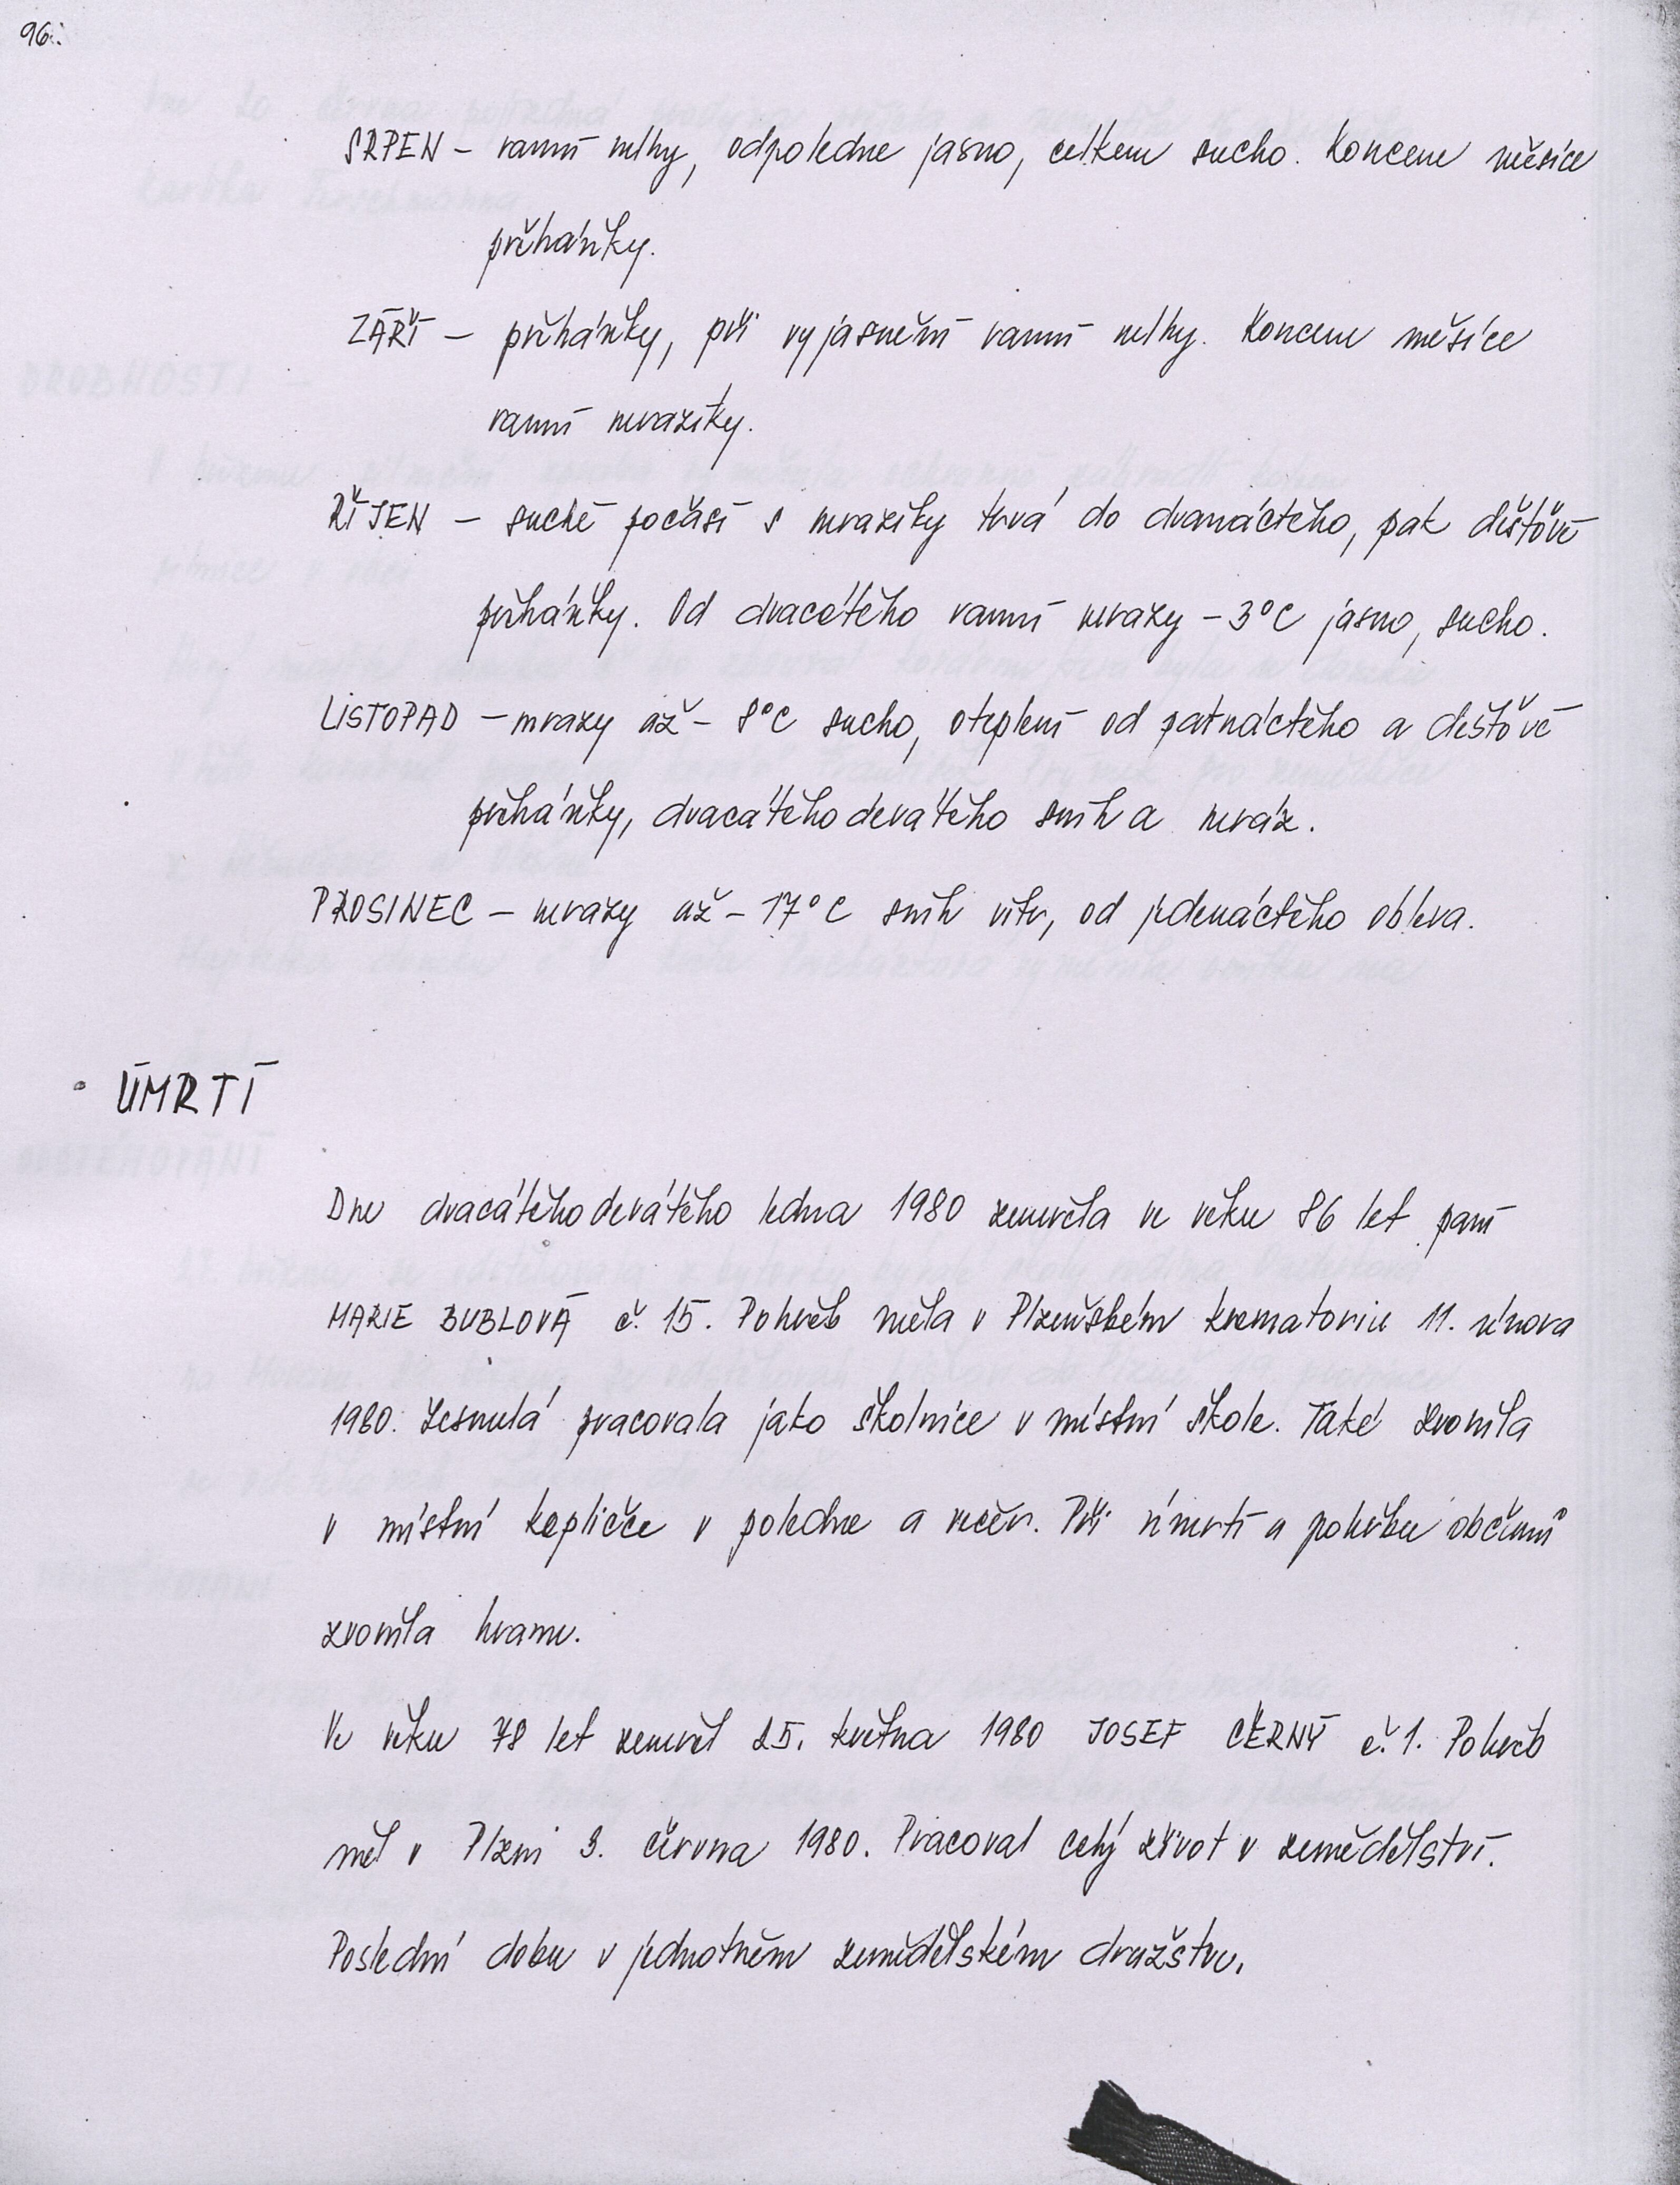 96.
SRPEN – ranní mlhy, odpoledne jasno, celkem sucho. Koncem měsíce
přeháňky.
ZÁŘÍ – přeháňky, při vyjasnění ranní mlhy. Koncem měsíce
ranní mrazíky.
ŘÍJEN – suché počasí s mrazíky trvá do dvanáctého, pak dešťové
přeháňky. Od dvacátého ranní mrazy – 3°C jasno, sucho.
LISTOPAD – mrazy až – 8°C sucho, oteplení od patnáctého a dešťové
přeháňky, dvacátéhodevátého sníh a mráz.
PROSINEC – mrazy až – 17°C sníh vítr, od jedenáctého obleva.
ÚMRTÍ
Dne dvacátéhodevátého ledna 1980 zemřela ve věku 86 let paní
MARIE BUBLOVÁ č. 15. Pohřeb měla v Plzeňském krematoriu 11. února
1980. Zesnulá pracovala jako školnice v místní škole. Také zvonila
v místní kapličce v poledne a večer. Při úmrtí a pohřbu občanů
zvonila hranu.
Ve věku 78 let zemřel 25. května 1980 JOSEF ČERNÝ č. 1. Pohřeb
měl v Plzni 3. června 1980. Pracoval celý život v zemědělství.
Poslední dobu v jednotném zemědělském družstvu.